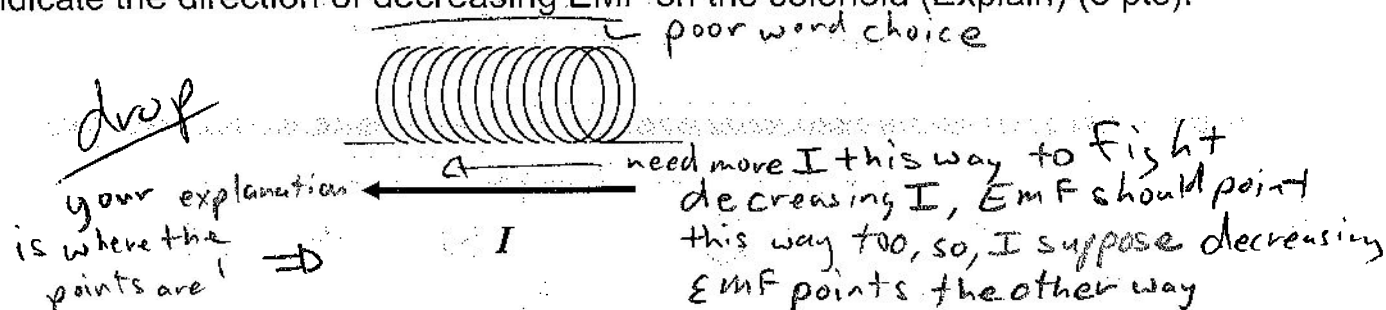 ndicate the direction of decreasing EMF on the solenoid (Explain) (5 pts).
poor word choice
drop
your explanation
is where the
points are!
need more I this way to fight
decreasing I, EMF should point
this way too, so, I suppose decreasing
EMF points the other way
I